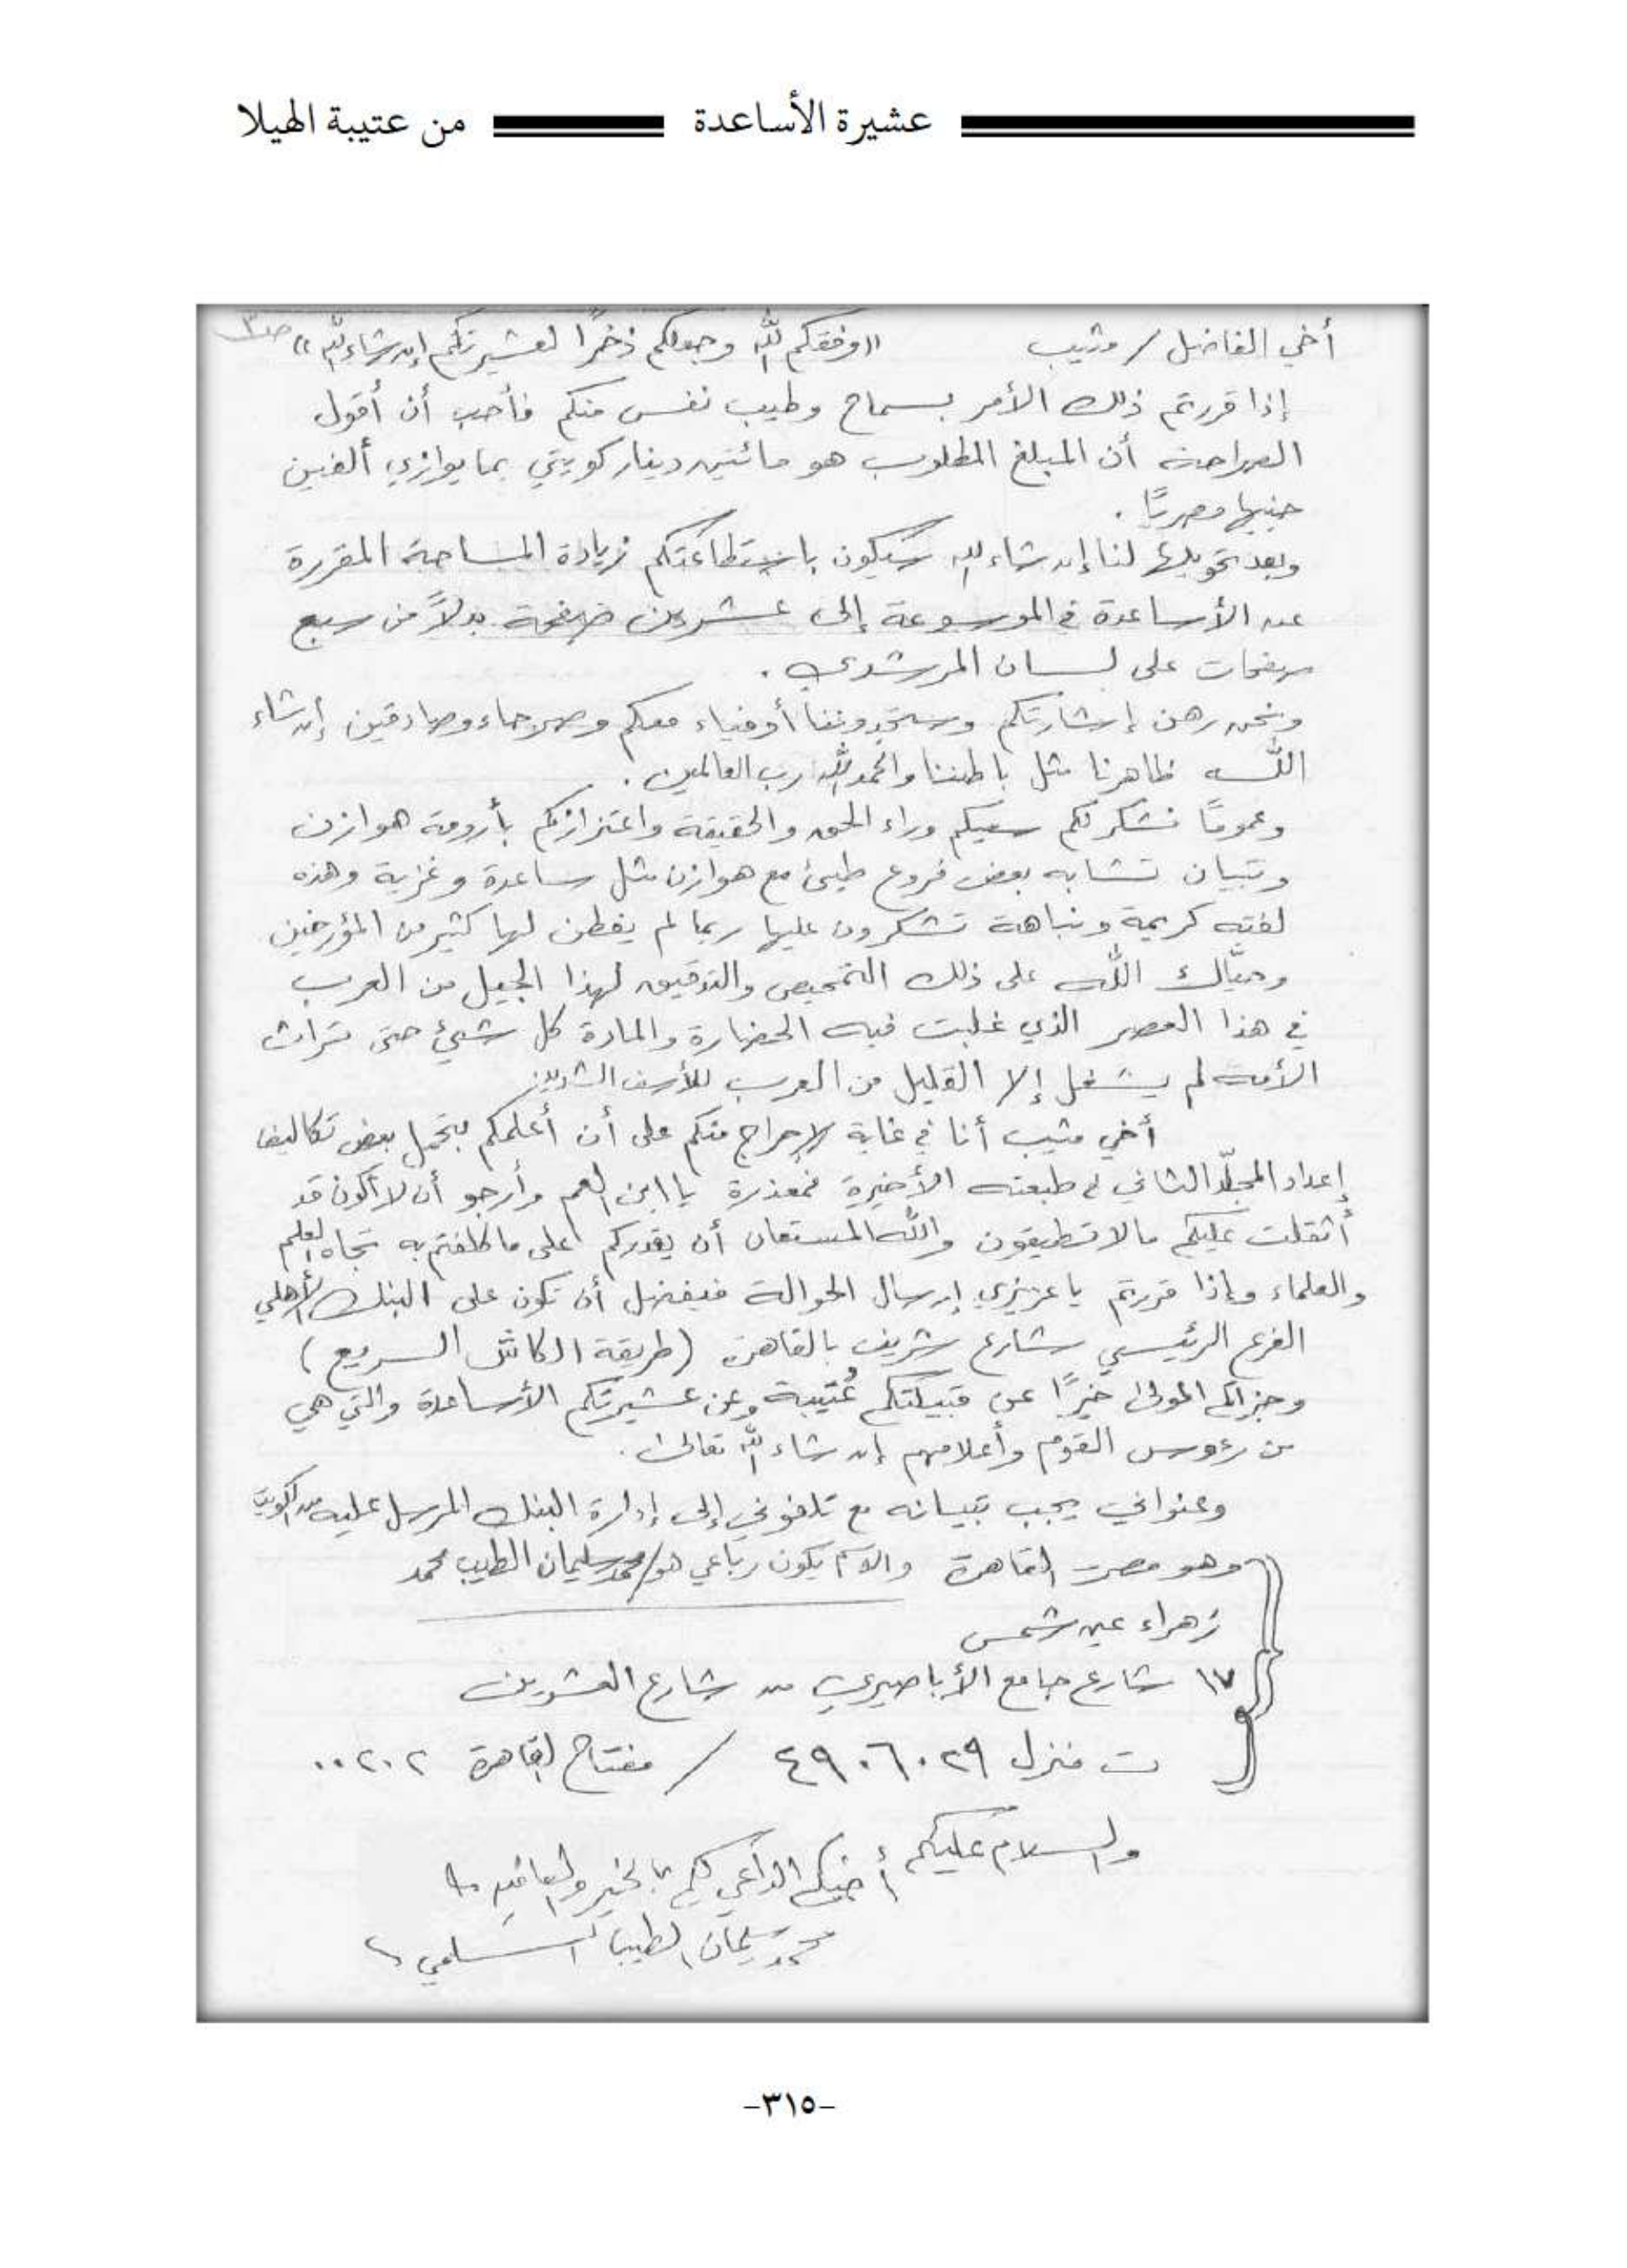 عشيرة الأساعدة من عتيبة الهيلا
أخي الفاضل / مثيب «وفقكم الله وجعلكم ذخرًا لعشيرتكم إن شاء الله» صـ٣
إذا قررتم ذلك الأمر بسماح وطيب نفس منكم فأحب أن أقول
الصراحة أن المبلغ المطلوب هو مائتين دينار كويتي بما يوازي ألفين
جنيها مصريًا .
وبعد تحويلها لنا إن شاء الله سيكون باستطاعتكم زيادة المساحة المقررة
عن الأساعدة في الموسوعة إلى عشرين صفحة بدلاً من سبع
صفحات على لسان المرشدي .
ونحن رهن إشارتكم وستجدوننا أوفياء معكم وصرحاء وصادقين إن شاء
الله ظاهرنا مثل باطننا والحمد لله رب العالمين .
وعمومًا نشكر لكم سعيكم وراء الحق والحقيقة واعتزازكم بأرومة هوازن
وتبيان تشابه بعض فروع طيئ مع هوازن مثل ساعدة وغزية وهذه
لفته كريمة ونباهة تشكرون عليها ربما لم يفطن لها كثير من المؤرخين
وحيّاك الله على ذلك التمحيص والتدقيق لهذا الجيل من العرب
في هذا العصر الذي غلبت فيه الحضارة والمادة كل شيئ حتى تراث
الأمة لم يشغل إلا القليل من العرب للأسف الشديد
أخي مثيب أنا في غاية الإحراج منكم على أن أعلمكم بتحمل بعض تكاليف
إعداد المجلّد الثاني في طبعته الأخيرة فمعذرة يا ابن العم وأرجو أن لا أكون قد
أثقلت عليكم مالا تطيقون والله المستعان أن يقدركم على ما كلفتم به تجاه العلم
والعلماء وإذا قررتم يا عزيزي إرسال الحوالة فيفضل أن تكون على البنك الأهلي
الفرع الرئيسي شارع شريف بالقاهرة (طريقة الكاش السريع)
وجزاكم المولى خيرًا عن قبيلتكم عُتيبة وعن عشيرتكم الأساعدة والتي هي
من رءوس القوم وأعلامهم إن شاء الله تعالى .
وعنواني يجب تبيانه مع تلفوني إلى إدارة البنك المرسل عليه من الكويت
وهو مصر القاهرة والاسم يكون رباعي هو/ محمد سليمان الطيب محمد
زهراء عين شمس
١٧ شارع جامع الأباصيري من شارع العشرين
ت منزل ٤٩٠٦٠٢٩ / مفتاح القاهرة ٠٠٢٠٢
والسلام عليكم
أخيكم الداعي لكم بالخير والعافيه
محمد سليمان الطيب السلمي
-٣١٥-